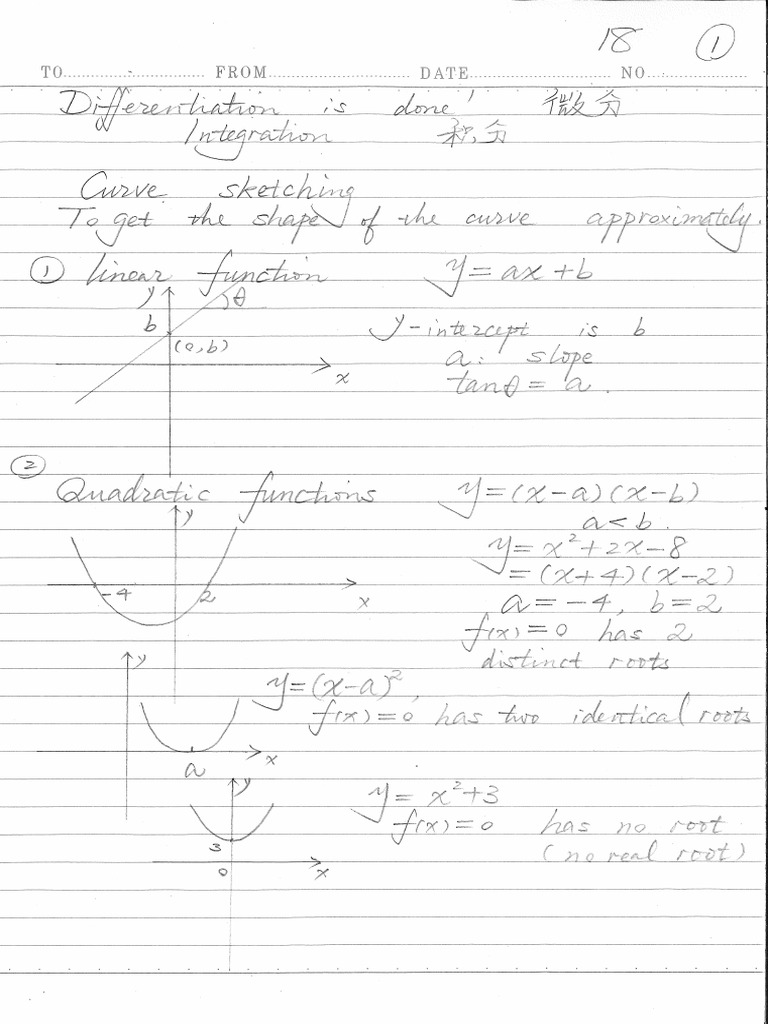 18 ①
TO FROM DATE NO.
Differentiation is done! 微分
Integration 积分
Curve sketching
To get the shape of the curve approximately.
① linear function y = ax + b
y θ
b
(0, b)
x
y-intercept is b
a: slope
tanθ = a.
②
Quadratic functions y = (x-a)(x-b)
a < b.
y
y = x² + 2x - 8
= (x+4)(x-2)
-4 2 x
a = -4, b = 2
f(x) = 0 has 2
distinct roots
y
y = (x-a)²,
f(x) = 0 has two identical roots
a x
y
y = x² + 3
f(x) = 0 has no root
(no real root)
3
0 x